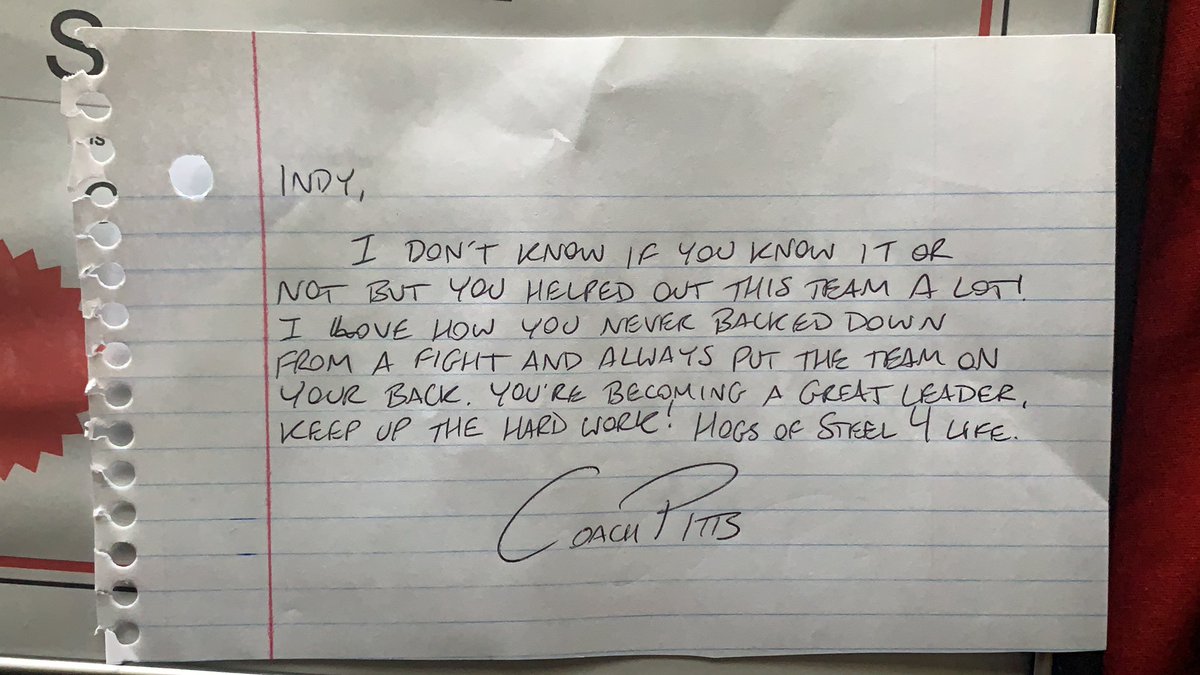 S
IS
INDY,
I DON'T KNOW IF YOU KNOW IT OR
NOT BUT YOU HELPED OUT THIS TEAM A LOT!
I LOVE HOW YOU NEVER BACKED DOWN
FROM A FIGHT AND ALWAYS PUT THE TEAM ON
YOUR BACK. YOU'RE BECOMING A GREAT LEADER,
KEEP UP THE HARD WORK! HOGS OF STEEL 4 LIFE.
COACH PITTS